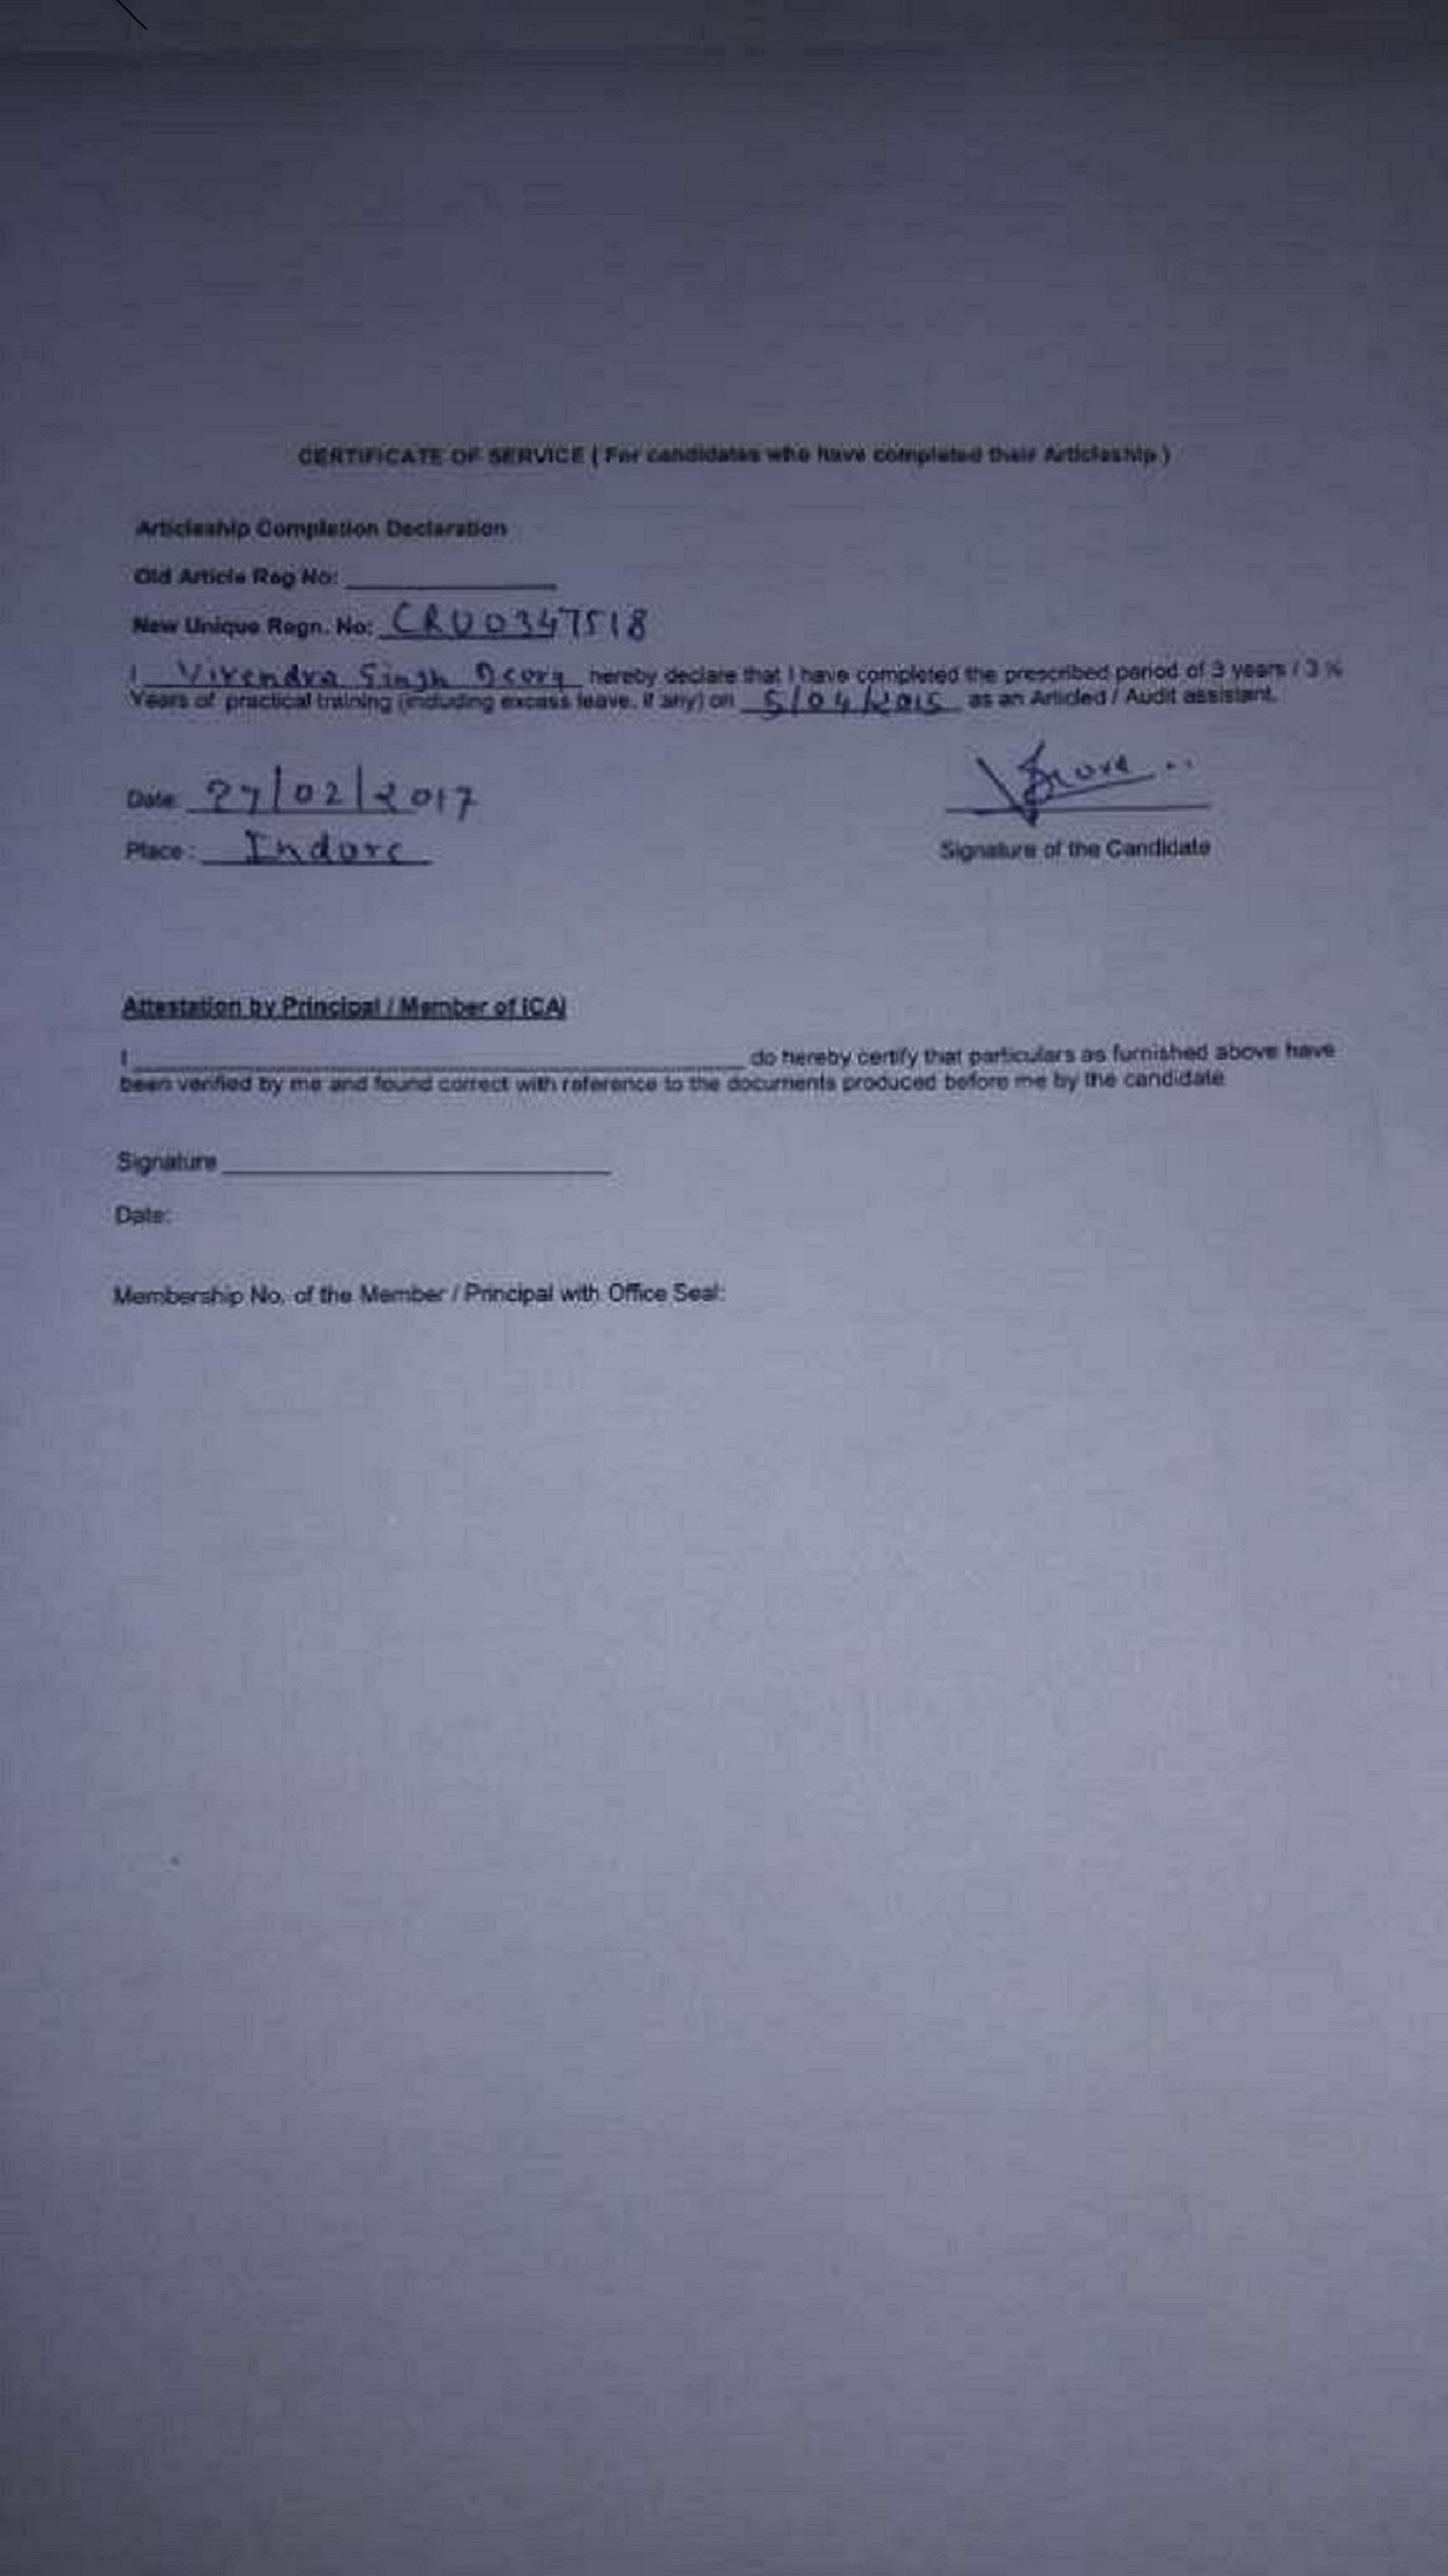 CERTIFICATE OF SERVICE ( For candidates who have completed their Articleship )
Articleship Completion Declaration
Old Article Reg No:
New Unique Regn. No: CRO0347518
I Virendra Singh hereby declare that I have completed the prescribed period of 3 years / 3 ½
Years of practical training (including excess leave, if any) on 5/04/2015 as an Articled / Audit assistant.
Date: 27/02/2017
Place : Indore
Signature of the Candidate
Attestation by Principal / Member of ICAI
I do hereby certify that particulars as furnished above have
been verified by me and found correct with reference to the documents produced before me by the candidate
Signature
Date:
Membership No. of the Member / Principal with Office Seal: